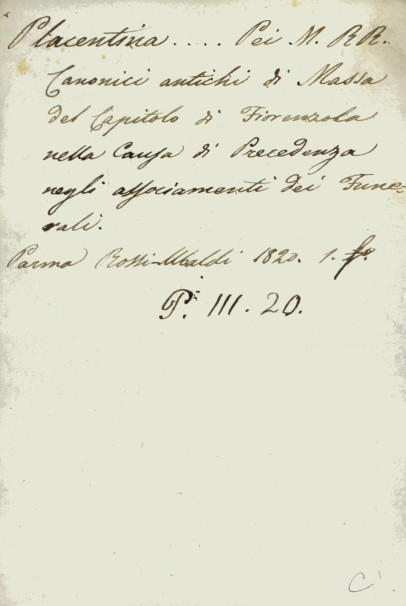 Placentina .... Pei M. RR.
Canonici antichi di Massa
del Capitolo di Fiorenzola
nella Causa di Precedenza
negli associamenti dei Fune-
rali.
Parma Rossi-Ubaldi 1820. 1. fo.
P. III. 20.
C